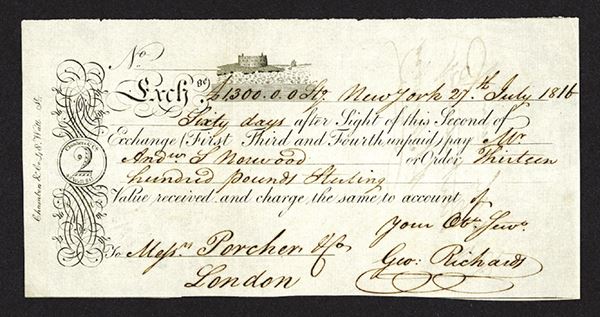 No
Exchge £1300.0.0 Stg. New York 27th July 1816
Sixty days after Sight of this Second of
Exchange (First Third and Fourth unpaid) pay Mr
Andw S Norwood or Order Thirteen
hundred pounds Sterling
Value received and charge the same to account of
your Obt. Servt.
To Messrs Porcher & Co Geo: Richards
London